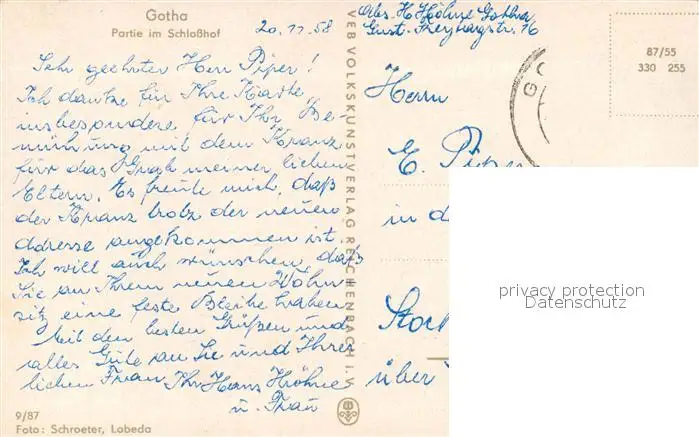 Gotha
Partie im Schloßhof
20.11.58
Sehr geehrter Herr Piper!
Ich danke für Ihre Karte,
insbesondere für Ihr Be-
mühung mit dem Kranz
für das Grab meiner lieben
Eltern. Es freute mich, daß
der Kranz trotz der neuen
Adresse angekommen ist.
Ich will auch wünschen, daß
Sie an Ihrem neuen Wohn
sitz eine feste Bleibe haben
Mit den besten Grüßen und
alles Gute an Sie und Ihrer
lieben Frau Ihr Hans Höhne
u. Frau
9/87
Foto: Schroeter, Lobeda
VEB VOLKSKUNSTVERLAG REICHENBACH I. V.
Abs. H. Höhne Gotha
Gust. Freytagstr. 16
87/55
330 255
GO
Herrn
E. Piper
in d
Stock
über
privacy protection
Datenschutz